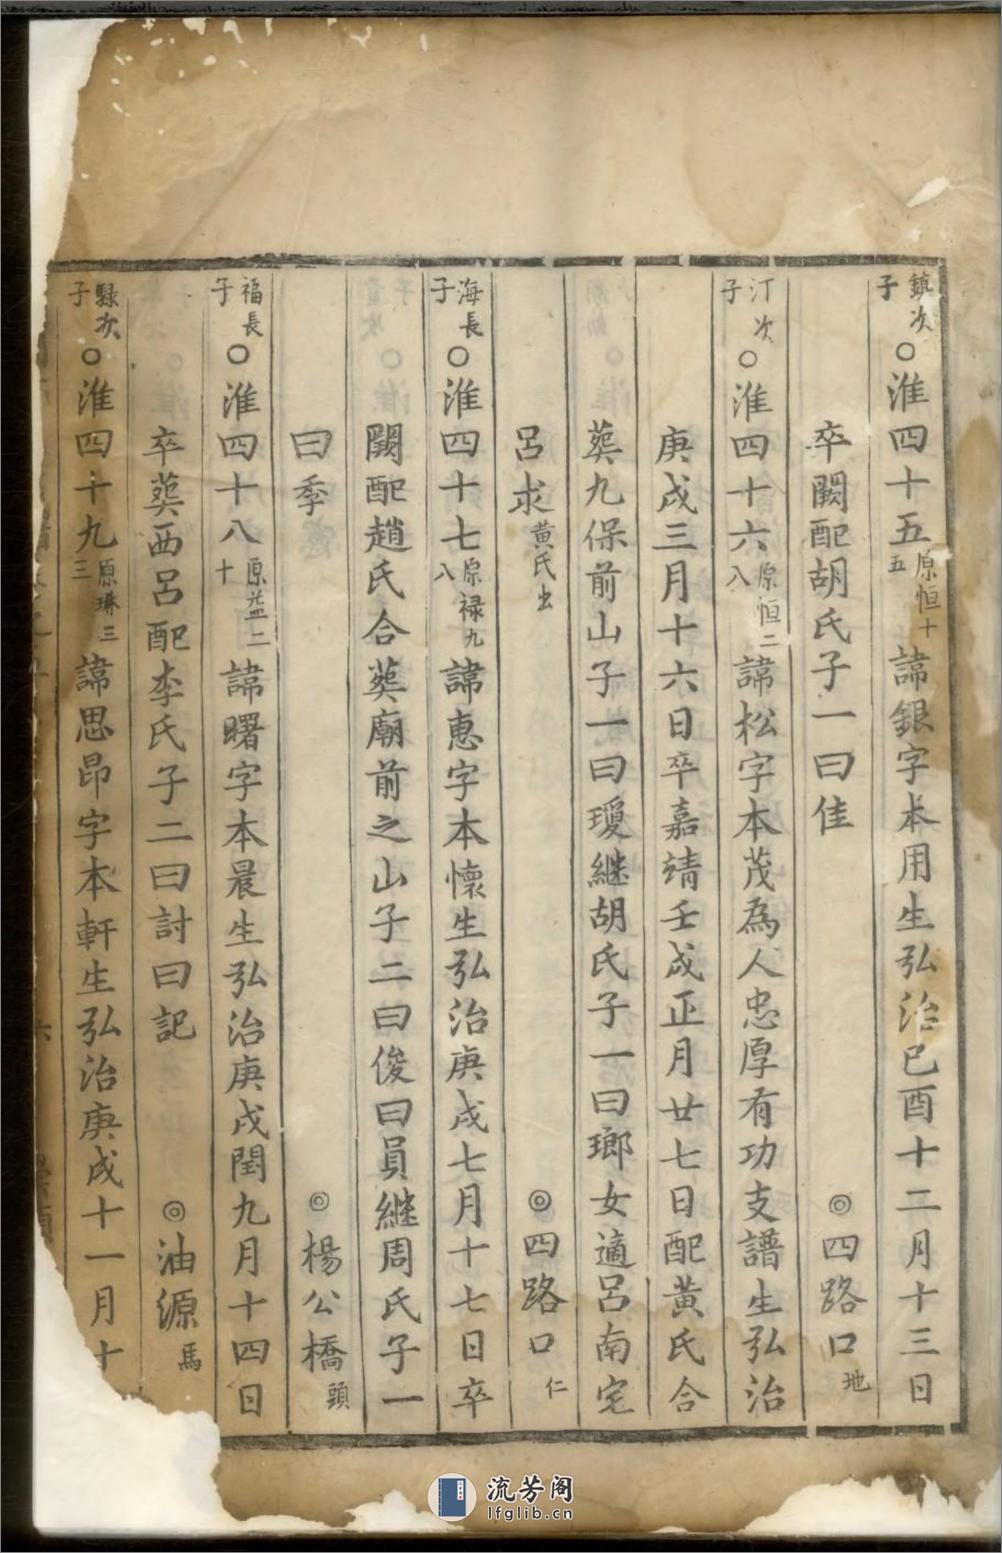 鎮次子○淮四十五原恒十五諱銀字本用生弘治己酉十二月十三日
卒闕配胡氏子一曰佳◎四路口地
汀次子○淮四十六原恒二八諱松字本茂為人忠厚有功支譜生弘治
庚戌三月十六日卒嘉靖壬戌正月廿七日配黃氏合
葬九保前山子一曰瓊繼胡氏子一曰瑯女適呂南宅
呂求黃氏出◎四路口仁
海長子○淮四十七原禄九八諱惠字本懷生弘治庚戌七月十七日卒
闕配趙氏合葬廟前之山子二曰俊曰員継周氏子一
曰季◎楊公橋頭
福長子○淮四十八原益二十諱曙字本晨生弘治庚戌閏九月十四日
卒葬西呂配李氏子二曰討曰記◎油源馬
騄次子○淮四十九原琳三三諱思昂字本軒生弘治庚戌十一月十
流芳阁
lfglib.cn